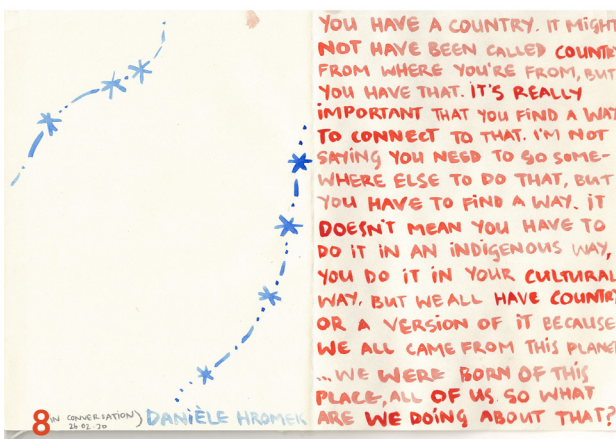 YOU HAVE A COUNTRY. IT MIGHT
NOT HAVE BEEN CALLED COUNTRY
FROM WHERE YOU'RE FROM, BUT
YOU HAVE THAT. IT'S REALLY
IMPORTANT THAT YOU FIND A WAY
TO CONNECT TO THAT. I'M NOT
SAYING YOU NEED TO GO SOME-
WHERE ELSE TO DO THAT, BUT
YOU HAVE TO FIND A WAY. IT
DOESN'T MEAN YOU HAVE TO
DO IT IN AN INDIGENOUS WAY,
YOU DO IT IN YOUR CULTURAL
WAY. BUT WE ALL HAVE COUNTRY
OR A VERSION OF IT BECAUSE
WE ALL CAME FROM THIS PLANET
...WE WERE BORN OF THIS
PLACE, ALL OF US. SO WHAT
ARE WE DOING ABOUT THAT?
8
IN CONVERSATION)
26.02.20
DANIÈLE HROMEK